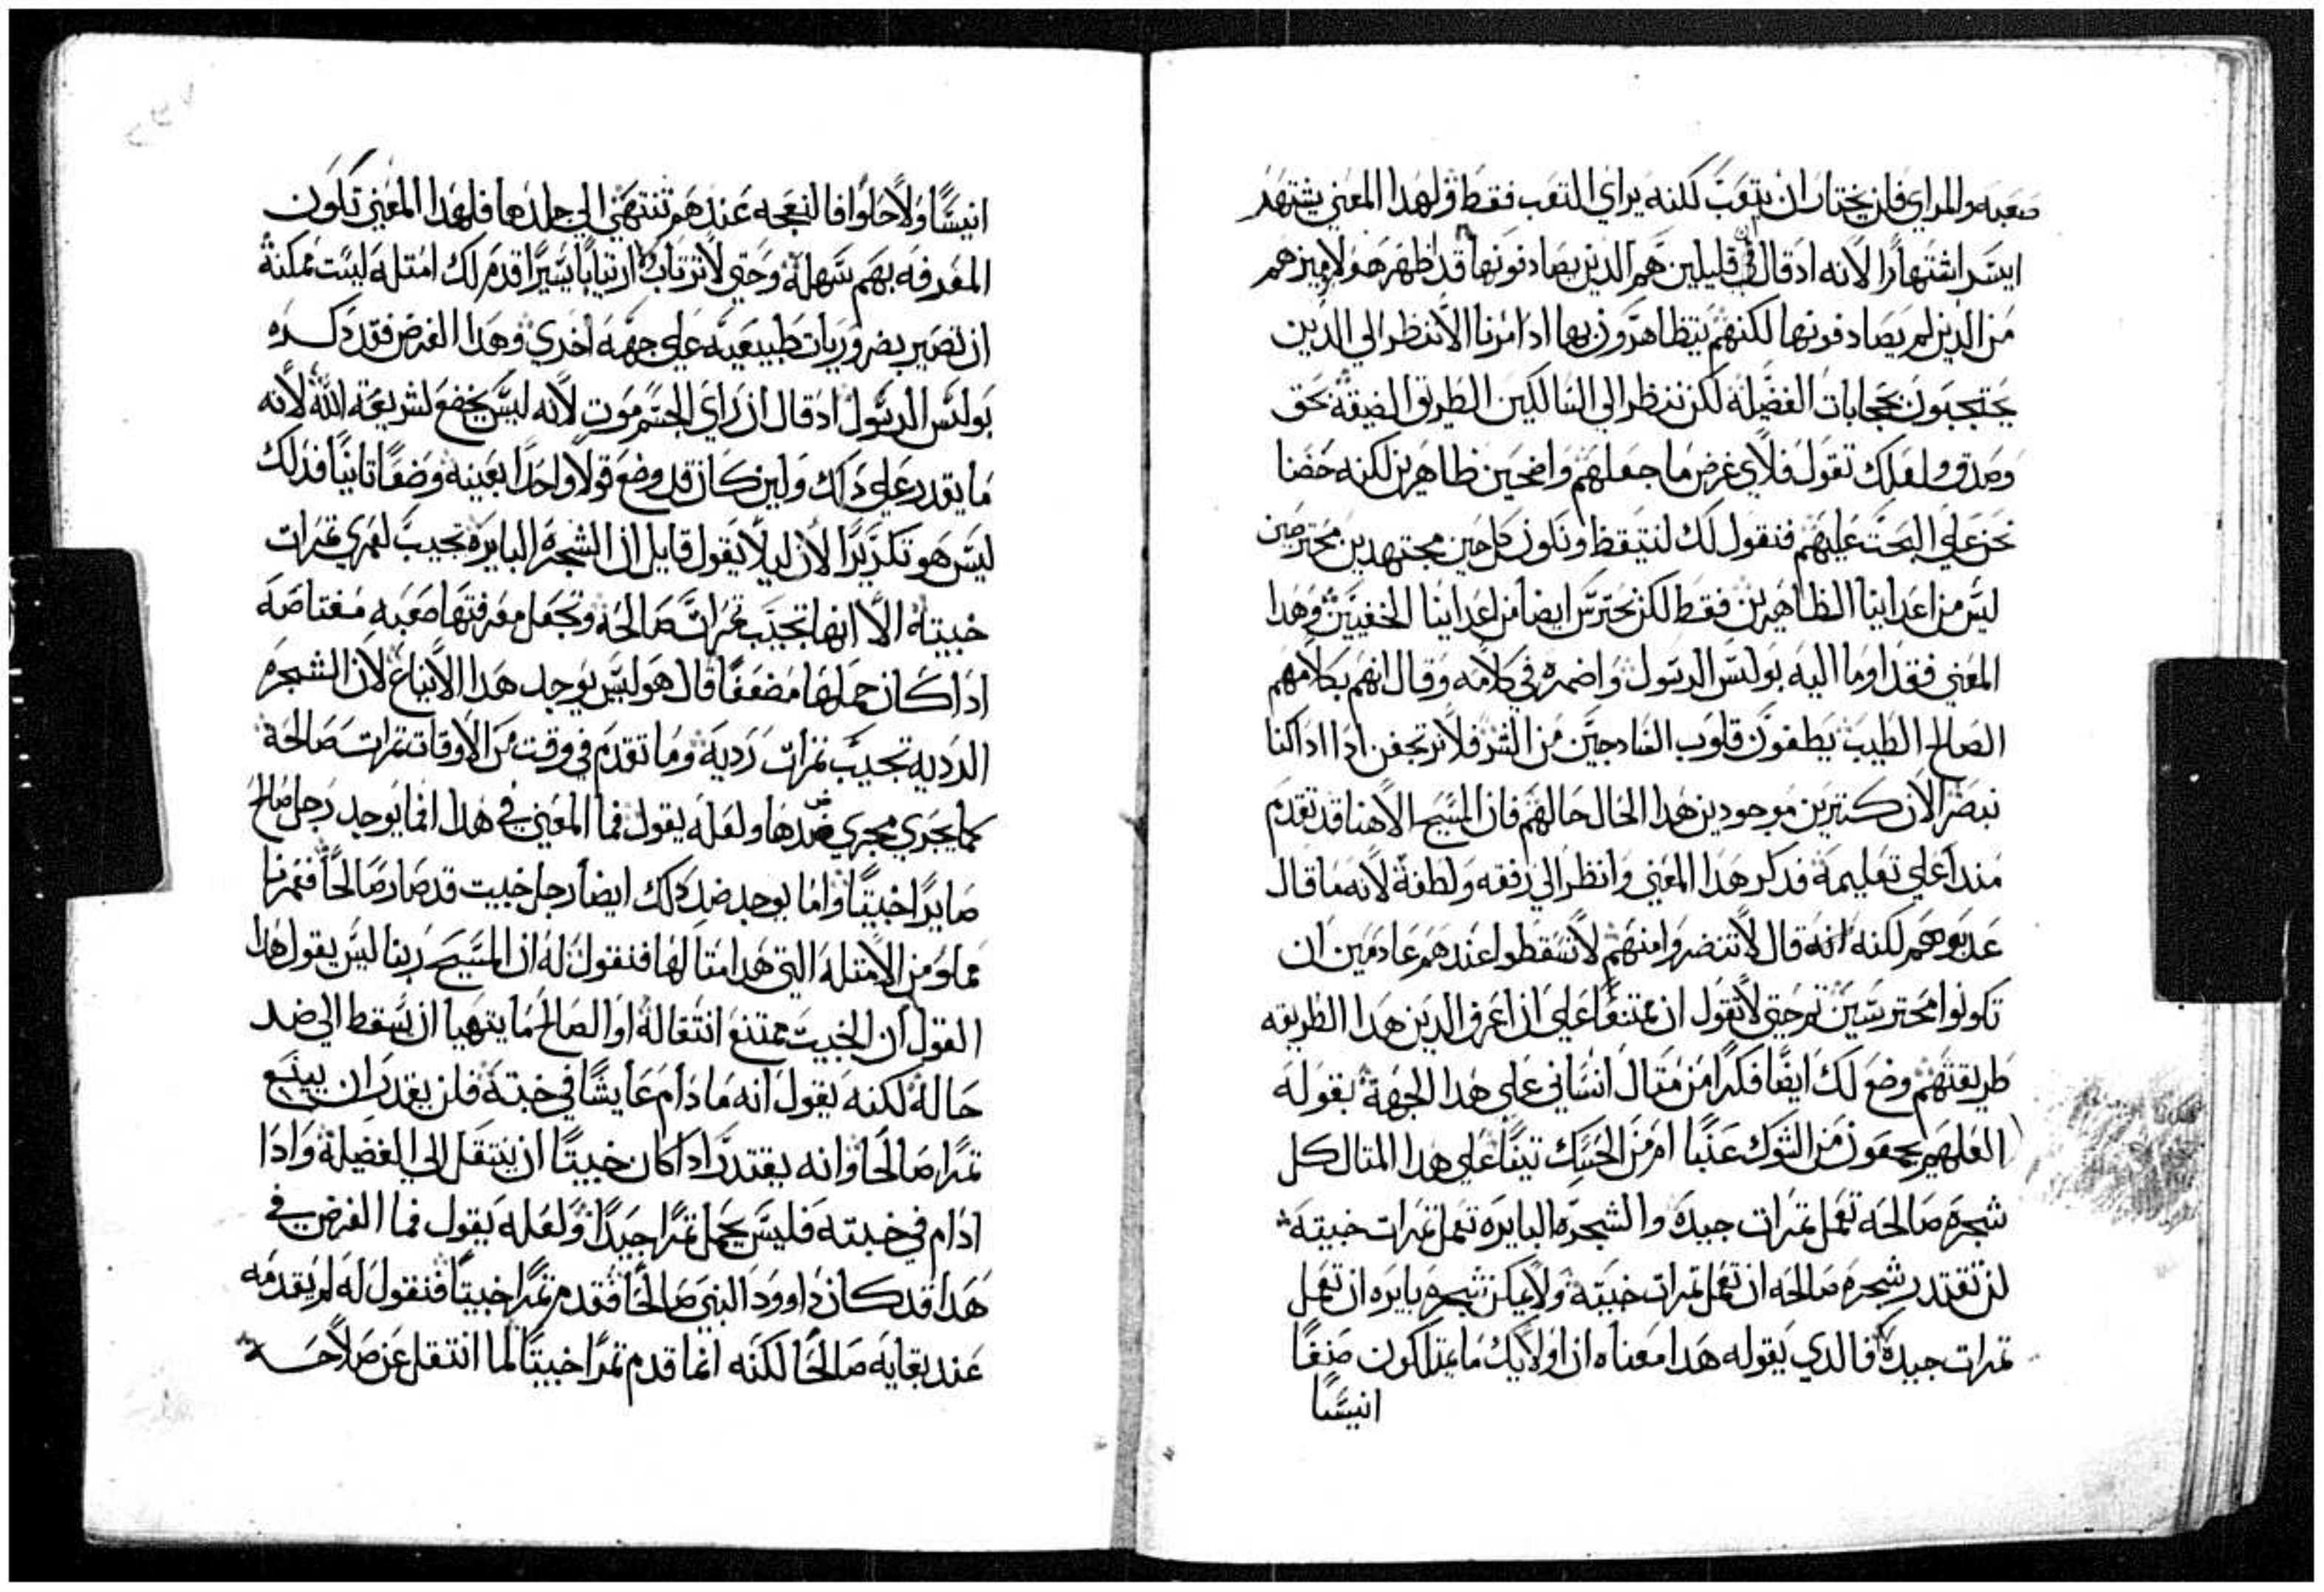 صعبه والمراي فلن يختار ان يتعب لكنه يراي التعب فقط ولهدا المعني يشتهر
ايسر اشتهارا لانه اد قال ان قليلين هم الدين يصادفونها قد اظهر هولا وميزهم
من الدين لم يصادفونها لكنهم يتظاهرون بها ادا مرنا الا ننظر الي الدين
يحتجبون بحجابات الفضيله لكن ننظر الي السالكين الطريق الضيقه بحق
وصدق ولعلك تقول فلاي غرض ما جعلهم واضحين ظاهرين لكنه حضنا
نحن علي البحت عليهم فنقول لك لنتيقظ ونكون كل حين مجتهدين محترصين
ليس من اعداينا الظاهرين فقط لكن نحترس ايضا من اعداينا الخفيين وهدا
المعني فقد اوما اليه بولس الرسول واضمره في كلامه وقال انهم بكلامهم
الصالح الطيب يطغون قلوب السادجين من الشر فلا نرتجفن ادا ادا كنا
نبصر الان كتيرين موجودين هدا الحال حالهم فان المسيح الاهنا قد تقدم
مند اعلي تعليمه فدكر هدا المعني وانظر الي رفقه ولطفه لانه ما قال
عدبوهم لكنه انه قال لا تنضروا منهم لا تسقطوا عندهم عادمين ان
تكونوا محترسين تم حتي لا تقول ان ممتنعا علي ان اعرف الدين هدا الطريقه
طريقتهم وضع لك ايضا فكرا من متال انساني علي هدا الجهة بقوله
العلهم يجمعون من الشوك عنبا ام من الحسك تينا علي هدا المتال كل
شجره صالحه تعمل تمرات جيده والشجره البايره تعمل تمرات خبيته
لن تقتدر شجره صالحه ان تعمل تمرات خبيته ولا يمكن شجره بايره ان تعمل
تمرات جيدة فالدي يقوله هدا معناه ان اولايك ما يمتلكون صنفا
انيسا
انيسا ولا حلوا فالنعجه عندهم تنتهي الي جلدها فلهدا المعني تكون
المعرفه بهم سهله وحتي لا ترتاب ارتيابا يسيرا قدم لك امتله ليست ممكنة
ان تصير بضروريات طبيعيه علي جهه اخري وهدا الغرض فقد دكره
بولس الرسول اد قال ان راي الجسم موت لانه ليس يخضع لشريعة الله لانه
ما يقدر علي داك ولين كان قد وضع قولا واحدا بعينه وضعا تانيا فدلك
ليس هو تكريرا لان ليلا يقول قايل ان الشجره البايره تجيب لعمري تمرات
خبيته الا انها تجيب تمرات صالحه وتجعل معرفتها صعبه مغتاصه
ادا كان حملها مضعفا قال هو ليس يوجد هدا الانباع لان الشجره
الرديه تجيب تمرات رديه وما تقدم في وقت من الاوقات تمرات صالحة
كما يجري مجري ضدها ولعله يقول فما المعني في هدا افما يوجد رجل صالح
صايرا خبيتا واما يوجد ضد دلك ايضا رجل خبيت قد صار صالحا فعمرنا
مملو من الامتله التي هدا متالها فنقول له ان المسيح ربنا ليس يقول هدا
القول ان الخبيت ممتنع انتقاله او الصالح ما يتهيا ان يسقط الي ضد
حاله لكنه يقول انه ما دام عايشا في خبته فلن يقدر ان يينع
تمرا صالحا وانه يقتدر ادا كان خبيتا ان ينتقل الي الفضيلة وادا
ادام في خبته فليس يحمل تمرا جيدا ولعله يقول فما الغرض في
هدا قد كان داوود النبي صالحا فقدم تمرا خبيتا فنقول له لم يقدمه
عند بقايه صالحا لكنه انما قدم تمرا خبيتا لما انتقل عن صلاحه